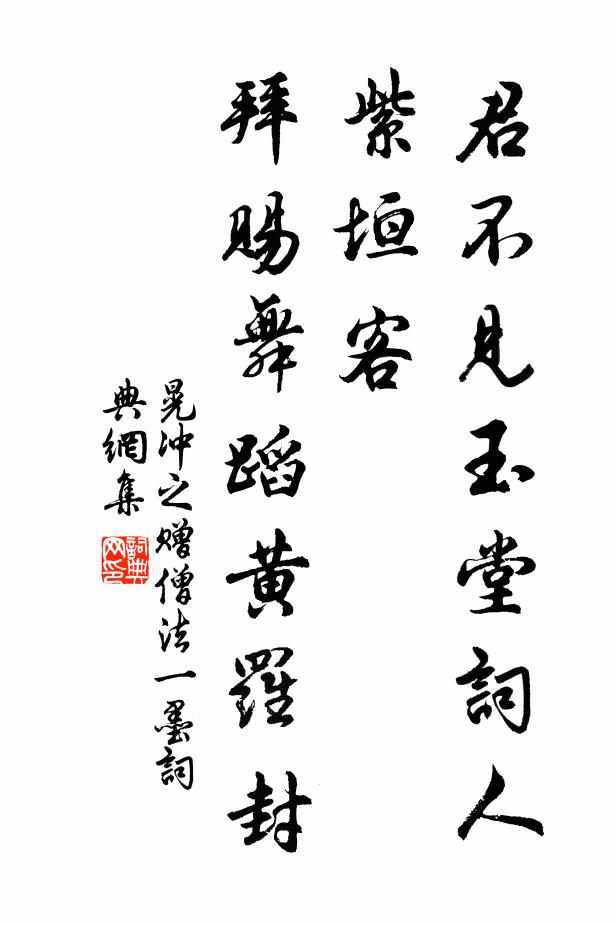 君不見玉堂詞人
紫垣客
拜賜舞蹈黃羅封
晃沖之贈僧法一墨詞
典網集
詞典
网印